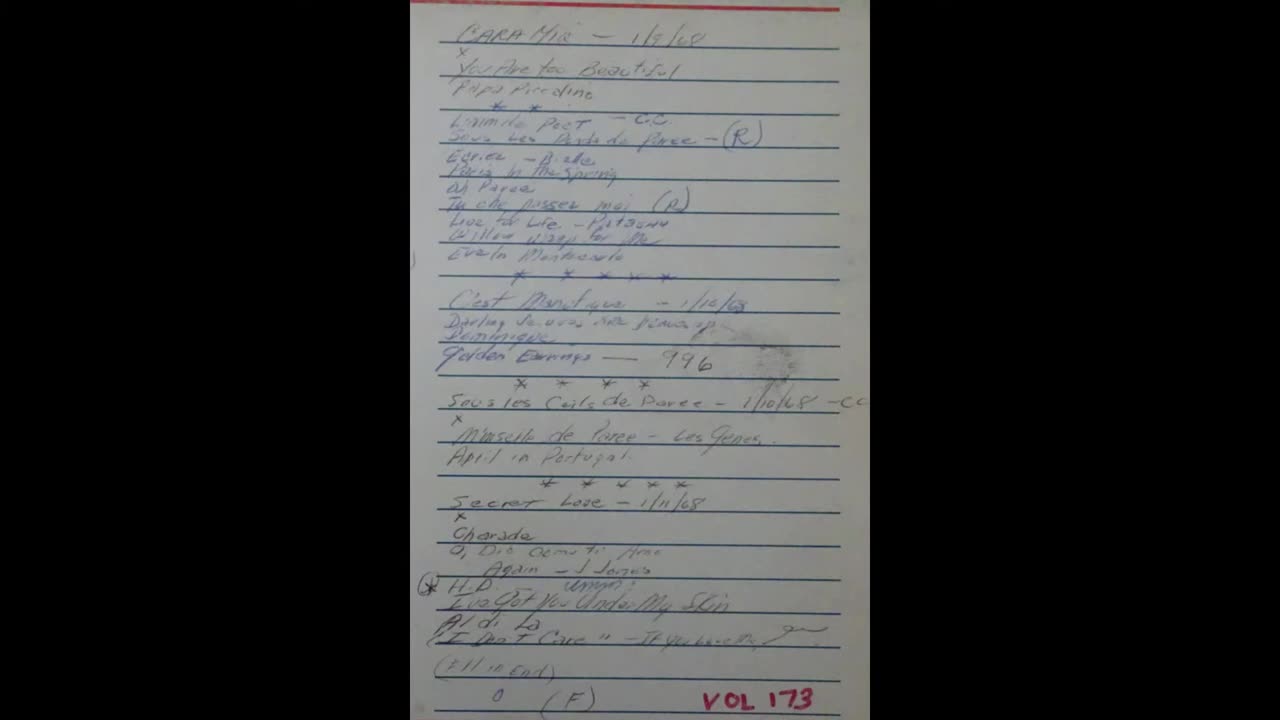 CARA Mia - 1/9/68
x
You Are too Beautiful
Papa Piccolino
* *
Poet - C.C.
Sous Les Ponts de Paree - (R)
Paris In the Spring
Ah Paree
Tu che passes mai (R)
Live for Life -
Willow Weep for Me
Eve In Montecarlo
* * * * *
C'est Manifique - 1/10/68
Darling
Dominique
Golden Earrings - 996
* * * *
Sous les Ceils de Paree - 1/10/68 - CC
x
de Paree - Les
April in Portugal
* * * * *
Secret Love - 1/11/68
x
Charade
O, Dio
Again - J Jones
* H.D. - umm!
I've Got You Under My Skin
Al di La
"I Don't Care" - If you Love Me,
(Fill in End)
0 (F)
VOL 173